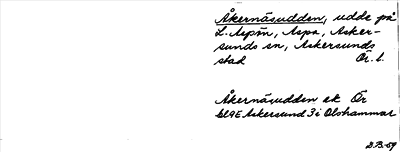 Åkernäsudden, udde på
L. Aspön, Aspa, Asker-
sunds sn, Askersunds
stad Ör. l.
Åkernäsudden ek Ör
bl9E Askersund 3 i Olshammar
B.B.-59